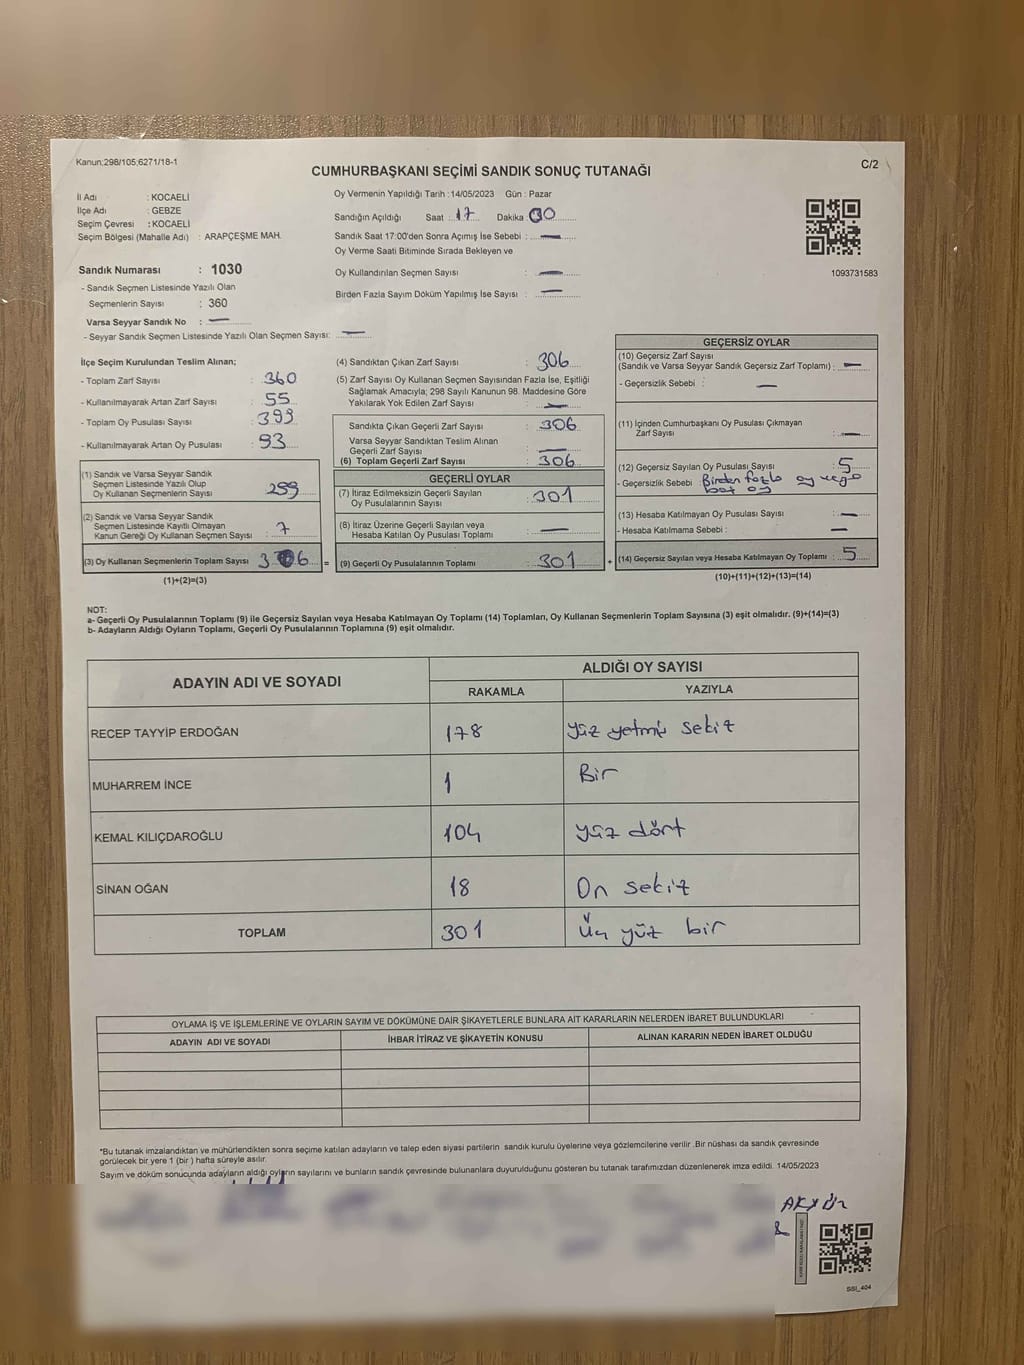 Kanun;298/105;6271/18-1
C/2
CUMHURBAŞKANI SEÇİMİ SANDIK SONUÇ TUTANAĞI
İl Adı : KOCAELİ
İlçe Adı : GEBZE
Seçim Çevresi : KOCAELİ
Seçim Bölgesi (Mahalle Adı) : ARAPÇEŞME MAH.
Oy Vermenin Yapıldığı Tarih :14/05/2023 Gün : Pazar
Sandığın Açıldığı Saat : 17 Dakika 00
Sandık Saat 17:00'den Sonra Açımış İse Sebebi : —
Oy Verme Saati Bitiminde Sırada Bekleyen ve
Oy Kullandırılan Seçmen Sayısı : —
Birden Fazla Sayım Döküm Yapılmış İse Sayısı : —
1093731583
Sandık Numarası : 1030
- Sandık Seçmen Listesinde Yazılı Olan
Seçmenlerin Sayısı : 360
Varsa Seyyar Sandık No : —
- Seyyar Sandık Seçmen Listesinde Yazılı Olan Seçmen Sayısı: —
İlçe Seçim Kurulundan Teslim Alınan;
- Toplam Zarf Sayısı : 360
- Kullanılmayarak Artan Zarf Sayısı : 55
- Toplam Oy Pusulası Sayısı : 399
- Kullanılmayarak Artan Oy Pusulası : 93
(1) Sandık ve Varsa Seyyar Sandık
Seçmen Listesinde Yazılı Olup
Oy Kullanan Seçmenlerin Sayısı : 299
(2) Sandık ve Varsa Seyyar Sandık
Seçmen Listesinde Kayıtlı Olmayan
Kanun Gereği Oy Kullanan Seçmen Sayısı : 7
(3) Oy Kullanan Seçmenlerin Toplam Sayısı 306 =
(1)+(2)=(3)
(4) Sandıktan Çıkan Zarf Sayısı : 306
(5) Zarf Sayısı Oy Kullanan Seçmen Sayısından Fazla İse, Eşitliği
Sağlamak Amacıyla; 298 Sayılı Kanunun 98. Maddesine Göre
Yakılarak Yok Edilen Zarf Sayısı : —
Sandıkta Çıkan Geçerli Zarf Sayısı : 306
Varsa Seyyar Sandıktan Teslim Alınan
Geçerli Zarf Sayısı : —
(6) Toplam Geçerli Zarf Sayısı : 306
GEÇERLİ OYLAR
(7) İtiraz Edilmeksizin Geçerli Sayılan
Oy Pusulalarının Sayısı : 301
(8) İtiraz Üzerine Geçerli Sayılan veya
Hesaba Katılan Oy Pusulası Toplamı : —
(9) Geçerli Oy Pusulalarının Toplamı : 301 +
GEÇERSİZ OYLAR
(10) Geçersiz Zarf Sayısı
(Sandık ve Varsa Seyyar Sandık Geçersiz Zarf Toplamı) : —
- Geçersizlik Sebebi : —
(11) İçinden Cumhurbaşkanı Oy Pusulası Çıkmayan
Zarf Sayısı : —
(12) Geçersiz Sayılan Oy Pusulası Sayısı : 5
- Geçersizlik Sebebi Birden fazla oy veya
oy
(13) Hesaba Katılmayan Oy Pusulası Sayısı : —
- Hesaba Katılmama Sebebi : —
(14) Geçersiz Sayılan veya Hesaba Katılmayan Oy Toplamı : 5
(10)+(11)+(12)+(13)=(14)
NOT:
a- Geçerli Oy Pusulalarının Toplamı (9) ile Geçersiz Sayılan veya Hesaba Katılmayan Oy Toplamı (14) Toplamları, Oy Kullanan Seçmenlerin Toplam Sayısına (3) eşit olmalıdır. (9)+(14)=(3)
b- Adayların Aldığı Oyların Toplamı, Geçerli Oy Pusulalarının Toplamına (9) eşit olmalıdır.
ADAYIN ADI VE SOYADI
ALDIĞI OY SAYISI
RAKAMLA YAZIYLA
RECEP TAYYİP ERDOĞAN 178 yüz yetmiş sekiz
MUHARREM İNCE 1 Bir
KEMAL KILIÇDAROĞLU 104 yüz dört
SİNAN OĞAN 18 On sekiz
TOPLAM 301 Üç yüz bir
OYLAMA İŞ VE İŞLEMLERİNE VE OYLARIN SAYIM VE DÖKÜMÜNE DAİR ŞİKAYETLERLE BUNLARA AİT KARARLARIN NELERDEN İBARET BULUNDUKLARI
ADAYIN ADI VE SOYADI İHBAR İTİRAZ VE ŞİKAYETİN KONUSU ALINAN KARARIN NEDEN İBARET OLDUĞU
*Bu tutanak imzalandıktan ve mühürlendikten sonra seçime katılan adayların ve talep eden siyasi partilerin sandık kurulu üyelerine veya gözlemcilerine verilir .Bir nüshası da sandık çevresinde
görülecek bir yere 1 (bir) hafta süreyle asılır.
Sayım ve döküm sonucunda adayların aldığı oyların sayılarını ve bunların sandık çevresinde bulunanlara duyurulduğunu gösteren bu tutanak tarafımızdan düzenlenerek imza edildi. 14/05/2023
SSI_404